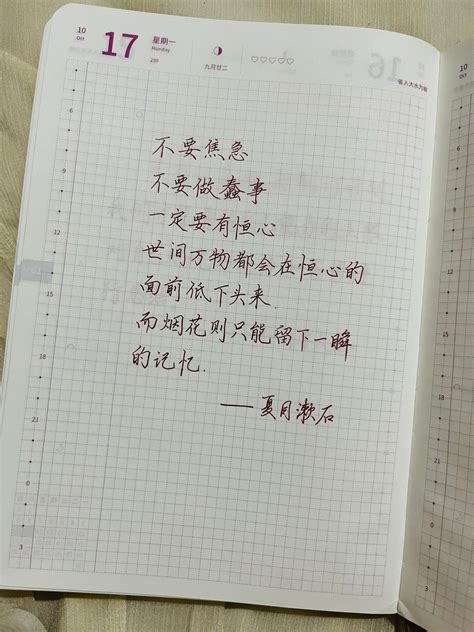 10
Oct
17
星期一
Monday
290
九月廿二
♡♡♡♡♡
不要焦急
不要做蠢事
一定要有恒心
世间万物都会在恒心的
面前低下头来.
而烟花则只能留下一瞬
的记忆.
——夏目漱石
10
Oct